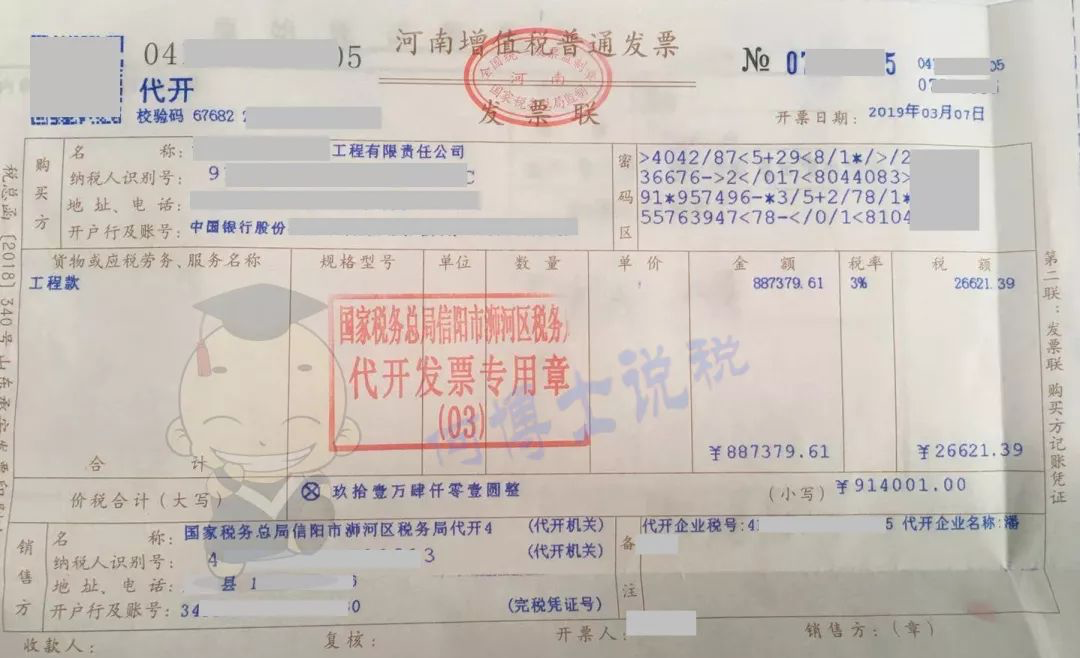 04 05
河南增值税普通发票
№ 07 5
04 05
07
代开
发票联
校验码 67682 2
开票日期: 2019年03月07日
全国统一发票监制章
河 南
国家税务总局监制
购买方
名 称: 工程有限责任公司
纳税人识别号: 9 C
地 址、电 话:
开户行及账号: 中国银行股份
密码区
>4042/87<5+29<8/1*/>/2
36676->2</017<8044083>
91*957496-*3/5+2/78/1*
55763947<78-</0/1<8104
货物或应税劳务、服务名称 规格型号 单位 数 量 单 价 金 额 税率 税 额
工程款 887379.61 3% 26621.39
国家税务总局信阳市浉河区税务
代开发票专用章
(03)
阿博士说税
合 计 ¥887379.61 ¥26621.39
价税合计(大写) ⊗ 玖拾壹万肆仟零壹圆整 (小写) ¥914001.00
销售方
名 称: 国家税务总局信阳市浉河区税务局代开4 (代开机关)
纳税人识别号: 4 3 (代开机关)
地 址、电 话: 县 1 6
开户行及账号: 34 30 (完税凭证号)
备注
代开企业税号:41 5 代开企业名称:潘
收款人: 复核: 开票人: 销售方:(章)
税总函[2018]340号
第二联:发票联 购买方记账凭证